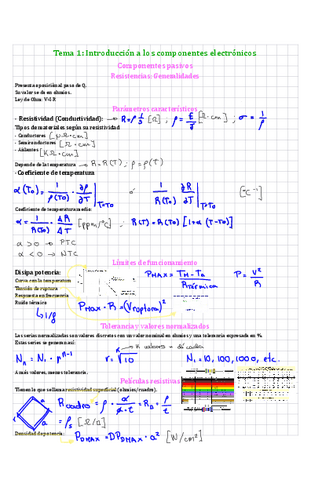 Tema 1: Introducción a los componentes electrónicos
Componentes pasivos
Resistencias: Generalidades
Presenta oposición al paso de Q.
Su valor se da en ohmios.
Ley de Ohm: V=I·R
Parámetros característicos
- Resistividad (Conductividad): → R = ρ l/S [Ω] ; ρ = [Ω·cm] ; σ = 1/ρ
Tipos de materiales según su resistividad
- Conductores
- Semiconductores [Ω·cm]
- Aislantes
[KΩ·cm]
Depende de la temperatura → R = R(T) ; ρ = ρ(T)
- Coeficiente de temperatura
α(T₀) = 1/ρ(T₀) · ∂ρ/∂T |T=T₀ ó 1/R(T₀) ∂R/∂T |T=T₀ [°C⁻¹]
Coeficiente de temperatura medio:
α = 1/R(T₀) · ΔR/ΔT [ppm/°C] ; R(T) = R(T₀) [1+α(T-T₀)]
α > 0 → PTC
α < 0 → NTC
Límites de funcionamiento
Disipa potencia: PMAX = (TM - Ta)/Rtérmica P = V²/R
Tensión de ruptura
Respuesta en frecuencia
PMAX · R = (Vruptura)²
Ruido térmico
↳ 1/f
Tolerancia y valores normalizados
Las series normalizadas son valores discretos con un valor nominal en ohmios y una tolerancia expresada en %.
Estas series se generan así:
K valores → década
Nₙ = N₁ · rⁿ⁻¹ r = ᴷ√10 N₁ = 10, 100, 1000, etc.
A más valores, menos tolerancia.
Películas resistivas
Tienen lo que se llama resistividad superficial (ohmios/cuadro).
R cuadro = ρ · a/(a·t) = R₀ = ρ/t
= ρs [Ω/□]
Densidad de potencia:
PDMAX = DPDMAX · a² [W/cm²]